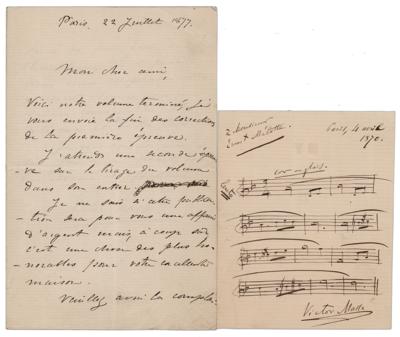 Paris, 22 Juillet 1877.
Mon cher ami,
Voici notre volume terminé, je
vous envoie la fin des corrections
de la première épreuve.
J'attends une seconde épreu-
-ve sur le tirage du volume
dans son entier
Je ne sais si cette publica-
-tion sera pour vous une affaire
d'argent mais, à coup sûr
c'est une chose des plus ho-
-norables pour votre excellente
maison.
Veuillez avoir la complai-
à Monsieur
Paris, 4 avril
1870.
cor anglais
Victor Massé